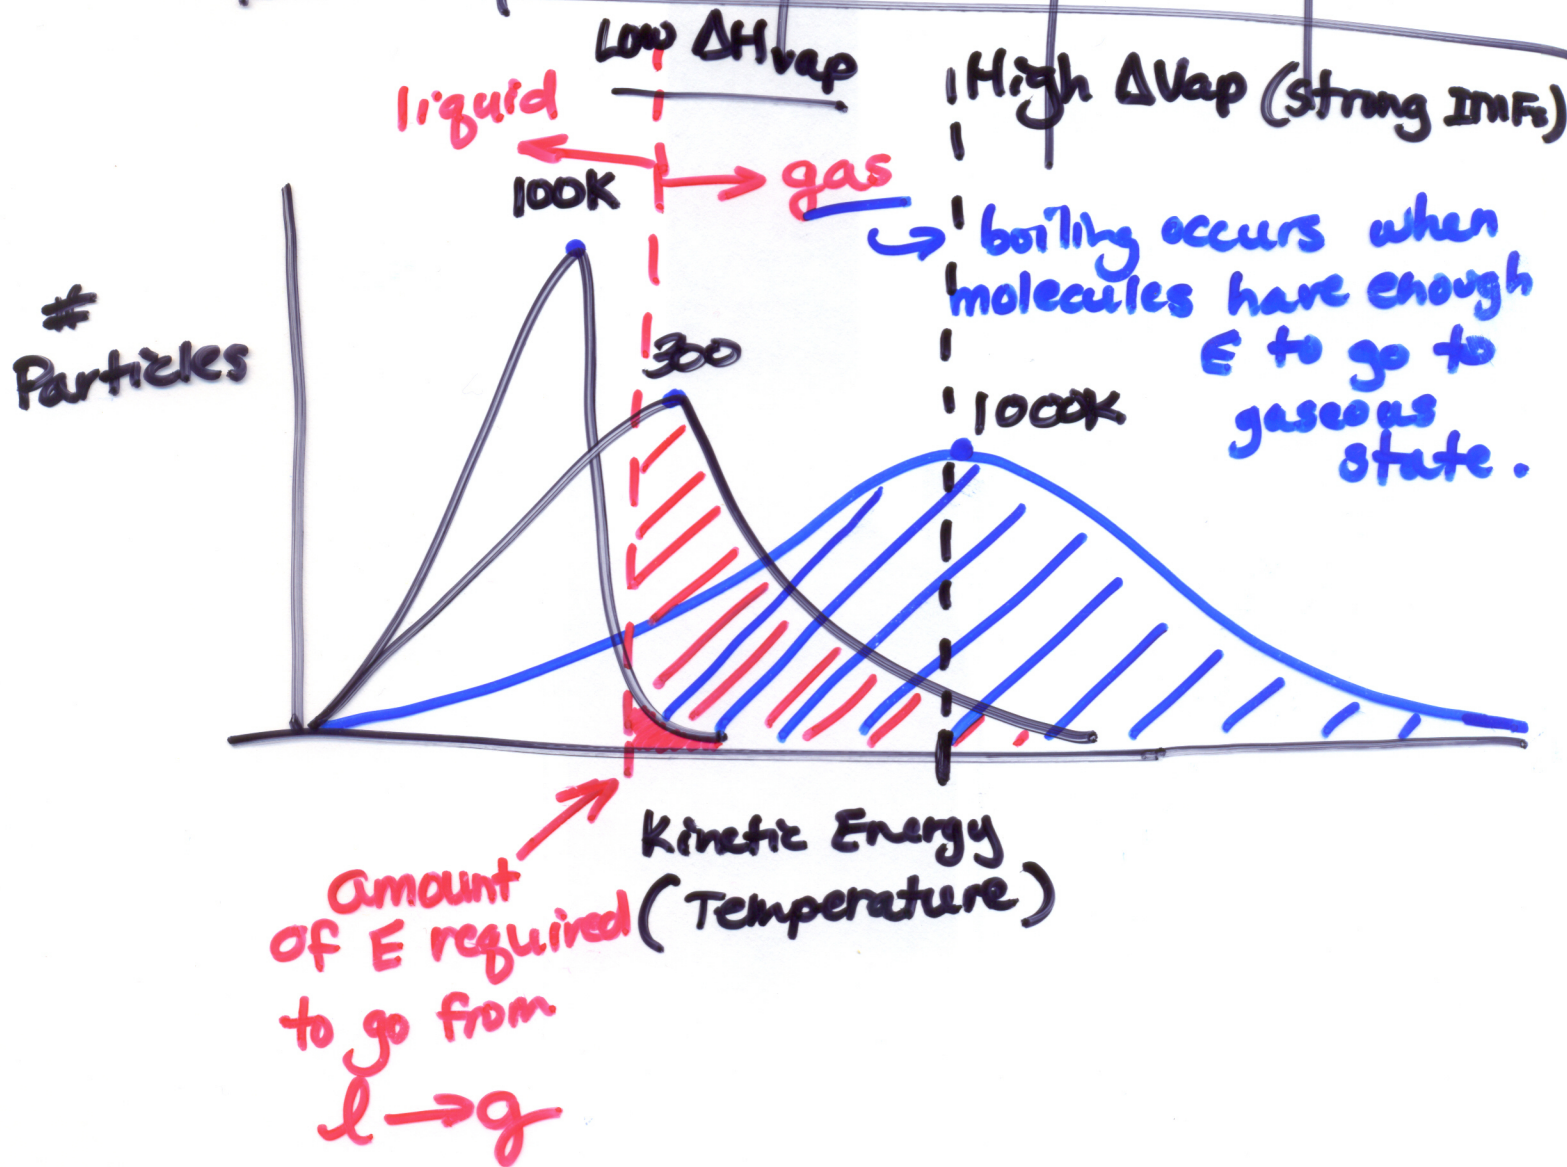 Low ΔHvap
High ΔVap (strong IMFs)
liquid
gas
100K
boiling occurs when
molecules have enough
E to go to
gaseous
state.
#
Particles
300
1000K
Kinetic Energy
(Temperature)
amount
of E required
to go from
l → g